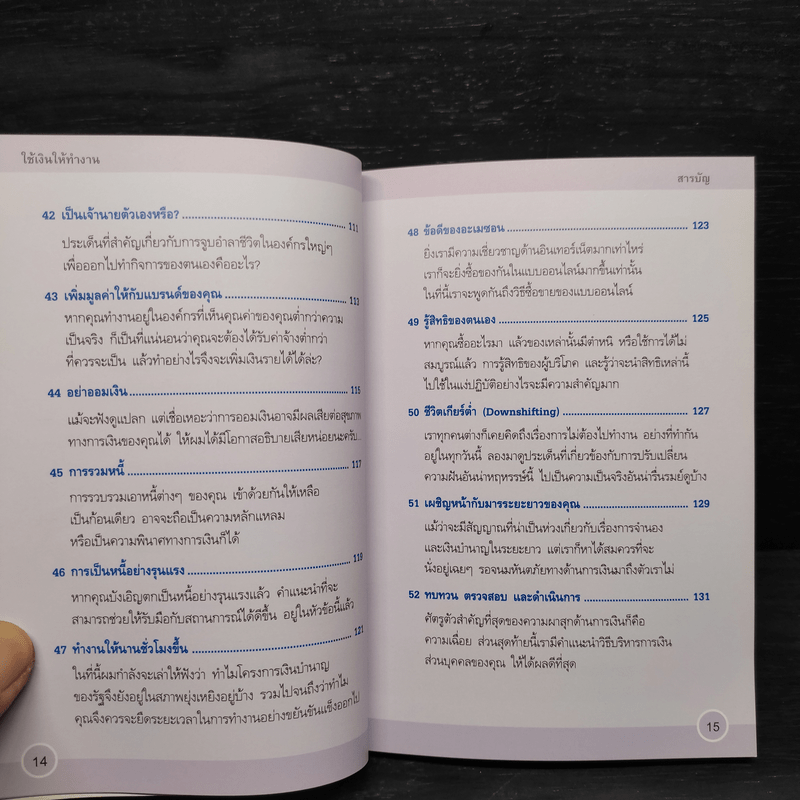 ใช้เงินให้ทำงาน
42 เป็นเจ้านายตัวเองหรือ? 111
ประเด็นที่สำคัญเกี่ยวกับการจูบอำลาชีวิตในองค์กรใหญ่ๆ
เพื่อออกไปทำกิจการของตนเองคืออะไร?
43 เพิ่มมูลค่าให้กับแบรนด์ของคุณ 113
หากคุณทำงานอยู่ในองค์กรที่เห็นคุณค่าของคุณต่ำกว่าความ
เป็นจริง ก็เป็นที่แน่นอนว่าคุณจะต้องได้รับค่าจ้างต่ำกว่า
ที่ควรจะเป็น แล้วทำอย่างไรจึงจะเพิ่มเงินรายได้ได้ล่ะ?
44 อย่าออมเงิน 115
แม้จะฟังดูแปลก แต่เชื่อเหอะว่าการออมเงินอาจมีผลเสียต่อสุขภาพ
ทางการเงินของคุณได้ ให้ผมได้มีโอกาสอธิบายเสียหน่อยนะครับ...
45 การรวมหนี้ 117
การรวบรวมเอาหนี้ต่างๆ ของคุณ เข้าด้วยกันให้เหลือ
เป็นก้อนเดียว อาจจะถือเป็นความหลักแหลม
หรือเป็นความพินาศทางการเงินก็ได้
46 การเป็นหนี้อย่างรุนแรง 119
หากคุณบังเอิญตกเป็นหนี้อย่างรุนแรงแล้ว คำแนะนำที่จะ
สามารถช่วยให้รับมือกับสถานการณ์ได้ดีขึ้น อยู่ในหัวข้อนี้แล้ว
47 ทำงานให้นานชั่วโมงขึ้น 121
ในที่นี้ผมกำลังจะเล่าให้ฟังว่า ทำไมโครงการเงินบำนาญ
ของรัฐจึงยังอยู่ในสภาพยุ่งเหยิงอยู่บ้าง รวมไปจนถึงว่าทำไม
คุณจึงควรจะยืดระยะเวลาในการทำงานอย่างขยันขันแข็งออกไป
14
สารบัญ
48 ข้อดีของอะเมซอน 123
ยิ่งเรามีความเชี่ยวชาญด้านอินเทอร์เน็ตมากเท่าไหร่
เราก็จะยิ่งซื้อของกันในแบบออนไลน์มากขึ้นเท่านั้น
ในที่นี้เราจะพูดกันถึงวิธีซื้อขายของแบบออนไลน์
49 รู้สิทธิของตนเอง 125
หากคุณซื้ออะไรมา แล้วของเหล่านั้นมีตำหนิ หรือใช้การได้ไม่
สมบูรณ์แล้ว การรู้สิทธิของผู้บริโภค และรู้ว่าจะนำสิทธิเหล่านี้
ไปใช้ในแง่ปฏิบัติอย่างไรจะมีความสำคัญมาก
50 ชีวิตเกียร์ต่ำ (Downshifting) 127
เราทุกคนต่างก็เคยคิดถึงเรื่องการไม่ต้องไปทำงาน อย่างที่ทำกัน
อยู่ในทุกวันนี้ ลองมาดูประเด็นที่เกี่ยวข้องกับการปรับเปลี่ยน
ความฝันอันน่าหฤหรรษ์นี้ ไปเป็นความเป็นจริงอันน่ารื่นรมย์ดูบ้าง
51 เผชิญหน้ากับมารระยะยาวของคุณ 129
แม้ว่าจะมีสัญญาณที่น่าเป็นห่วงเกี่ยวกับเรื่องการจำนอง
และเงินบำนาญในระยะยาว แต่เราก็หาได้สมควรที่จะ
นั่งอยู่เฉยๆ รอจนมหันตภัยทางด้านการเงินมาถึงตัวเราไม่
52 ทบทวน ตรวจสอบ และดำเนินการ 131
ศัตรูตัวสำคัญที่สุดของความผาสุกด้านการเงินก็คือ
ความเฉื่อย ส่วนสุดท้ายนี้เรามีคำแนะนำวิธีบริหารการเงิน
ส่วนบุคคลของคุณ ให้ได้ผลดีที่สุด
15